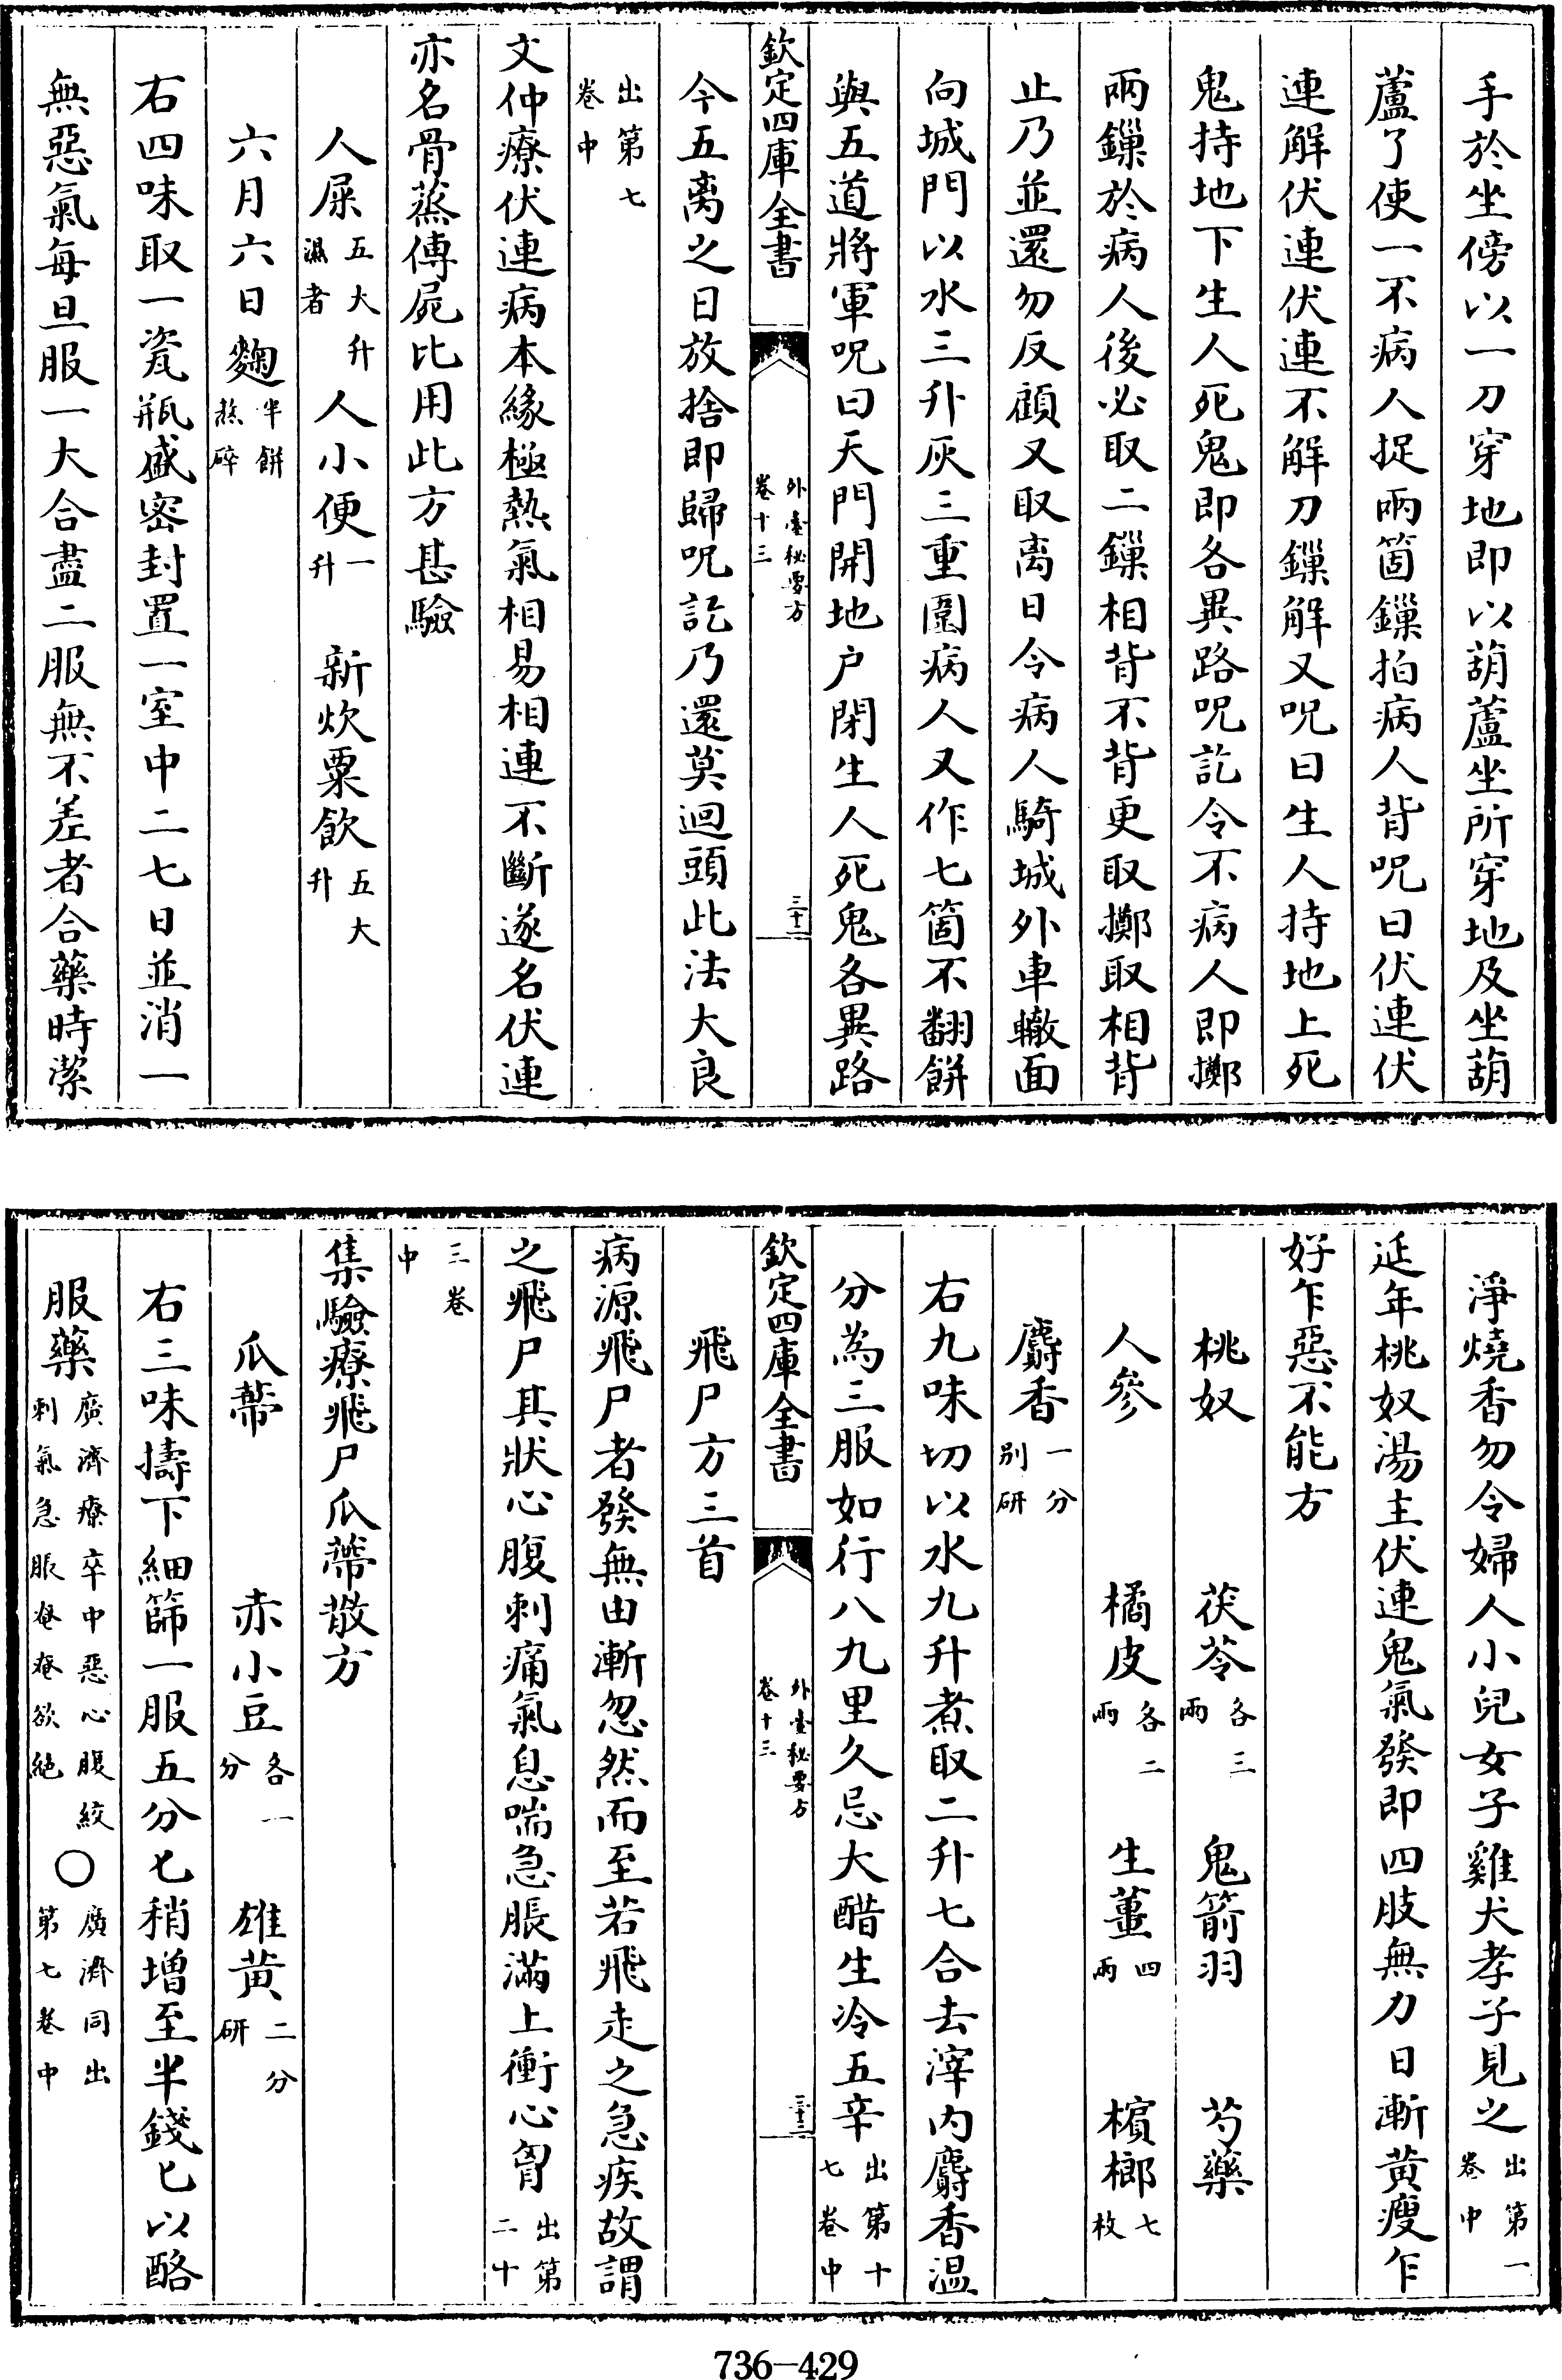 手於坐傍以一刀穿地即以葫蘆坐所穿地及坐葫
蘆了使一不病人捉兩箇鏁拍病人背呪曰伏連伏
連解伏連伏連不解刀鏁解又呪曰生人持地上死
鬼持地下生人死鬼即各異路呪訖令不病人即擲
兩鏁於病人後必取二鏁相背不背更取擲取相背
止乃並還勿反顧又取离日令病人騎城外車轍面
向城門以水三升灰三重圍病人又作七箇不翻餅
與五道將軍呪曰天門開地户閉生人死鬼各異路
欽定四庫全書 外臺秘要方卷十三 三十二
今五离之日放捨即歸呪訖乃還莫迴頭此法大良
出第七卷中
文仲療伏連病本緣極熱氣相易相連不斷遂名伏連
亦名骨蒸傳屍比用此方甚驗
人屎五大升濕者 人小便一升 新炊粟飲五大升
六月六日麴半餅熬碎
右四味取一瓷瓶盛密封置一室中二七日並消一
無惡氣每旦服一大合盡二服無不差者合藥時潔
淨燒香勿令婦人小兒女子雞犬孝子見之出第一卷中
延年桃奴湯主伏連鬼氣發即四肢無力日漸黄瘦乍
好乍惡不能方
桃奴 茯苓各三兩 鬼箭羽 芍藥
人參 橘皮各二兩 生薑四兩 檳榔七枚
麝香一分别研
右九味切以水九升煮取二升七合去滓内麝香温
分為三服如行八九里久忌大醋生冷五辛出第十七卷中
欽定四庫全書 外臺秘要方卷十三 三十三
飛尸方三首
病源飛尸者發無由漸忽然而至若飛走之急疾故謂
之飛尸其狀心腹刺痛氣息喘急脹滿上衝心胷出第二十
三卷中
集驗療飛尸瓜蔕散方
瓜蔕 赤小豆各一分 雄黄二分研
右三味擣下細篩一服五分匕稍增至半錢匕以酪
服藥廣濟療卒中惡心腹絞刺氣急脹奄奄欲絶〇廣濟同出第七卷中
736-429